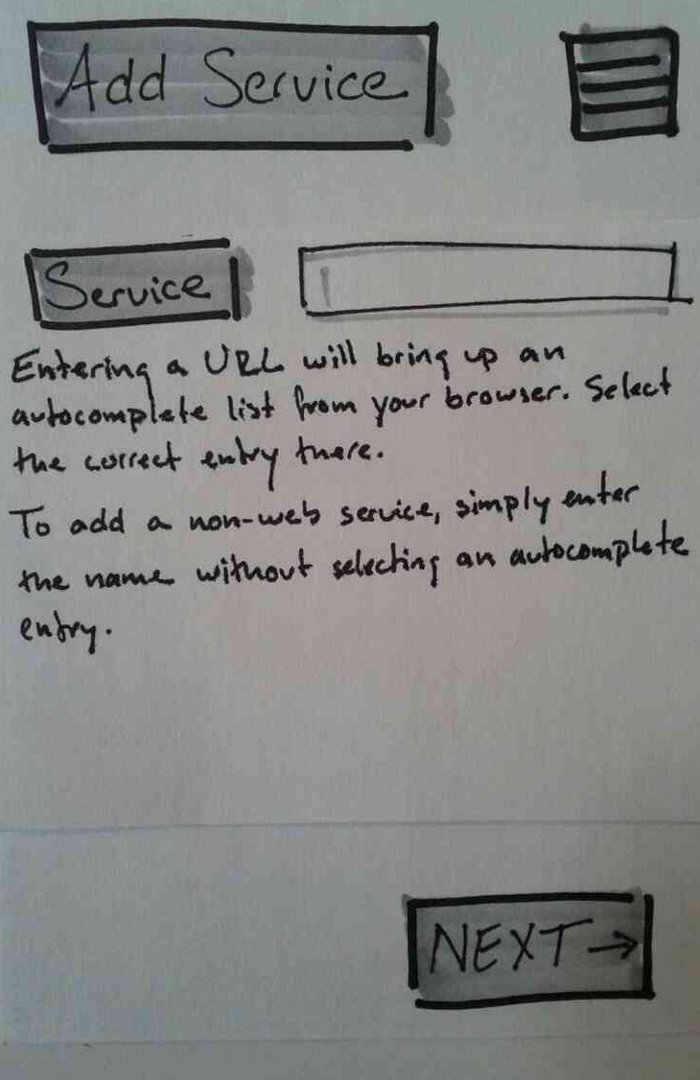 Add Service
Service
Entering a URL will bring up an
autocomplete list from your browser. Select
the correct entry there.
To add a non-web service, simply enter
the name without selecting an autocomplete
entry.
NEXT →